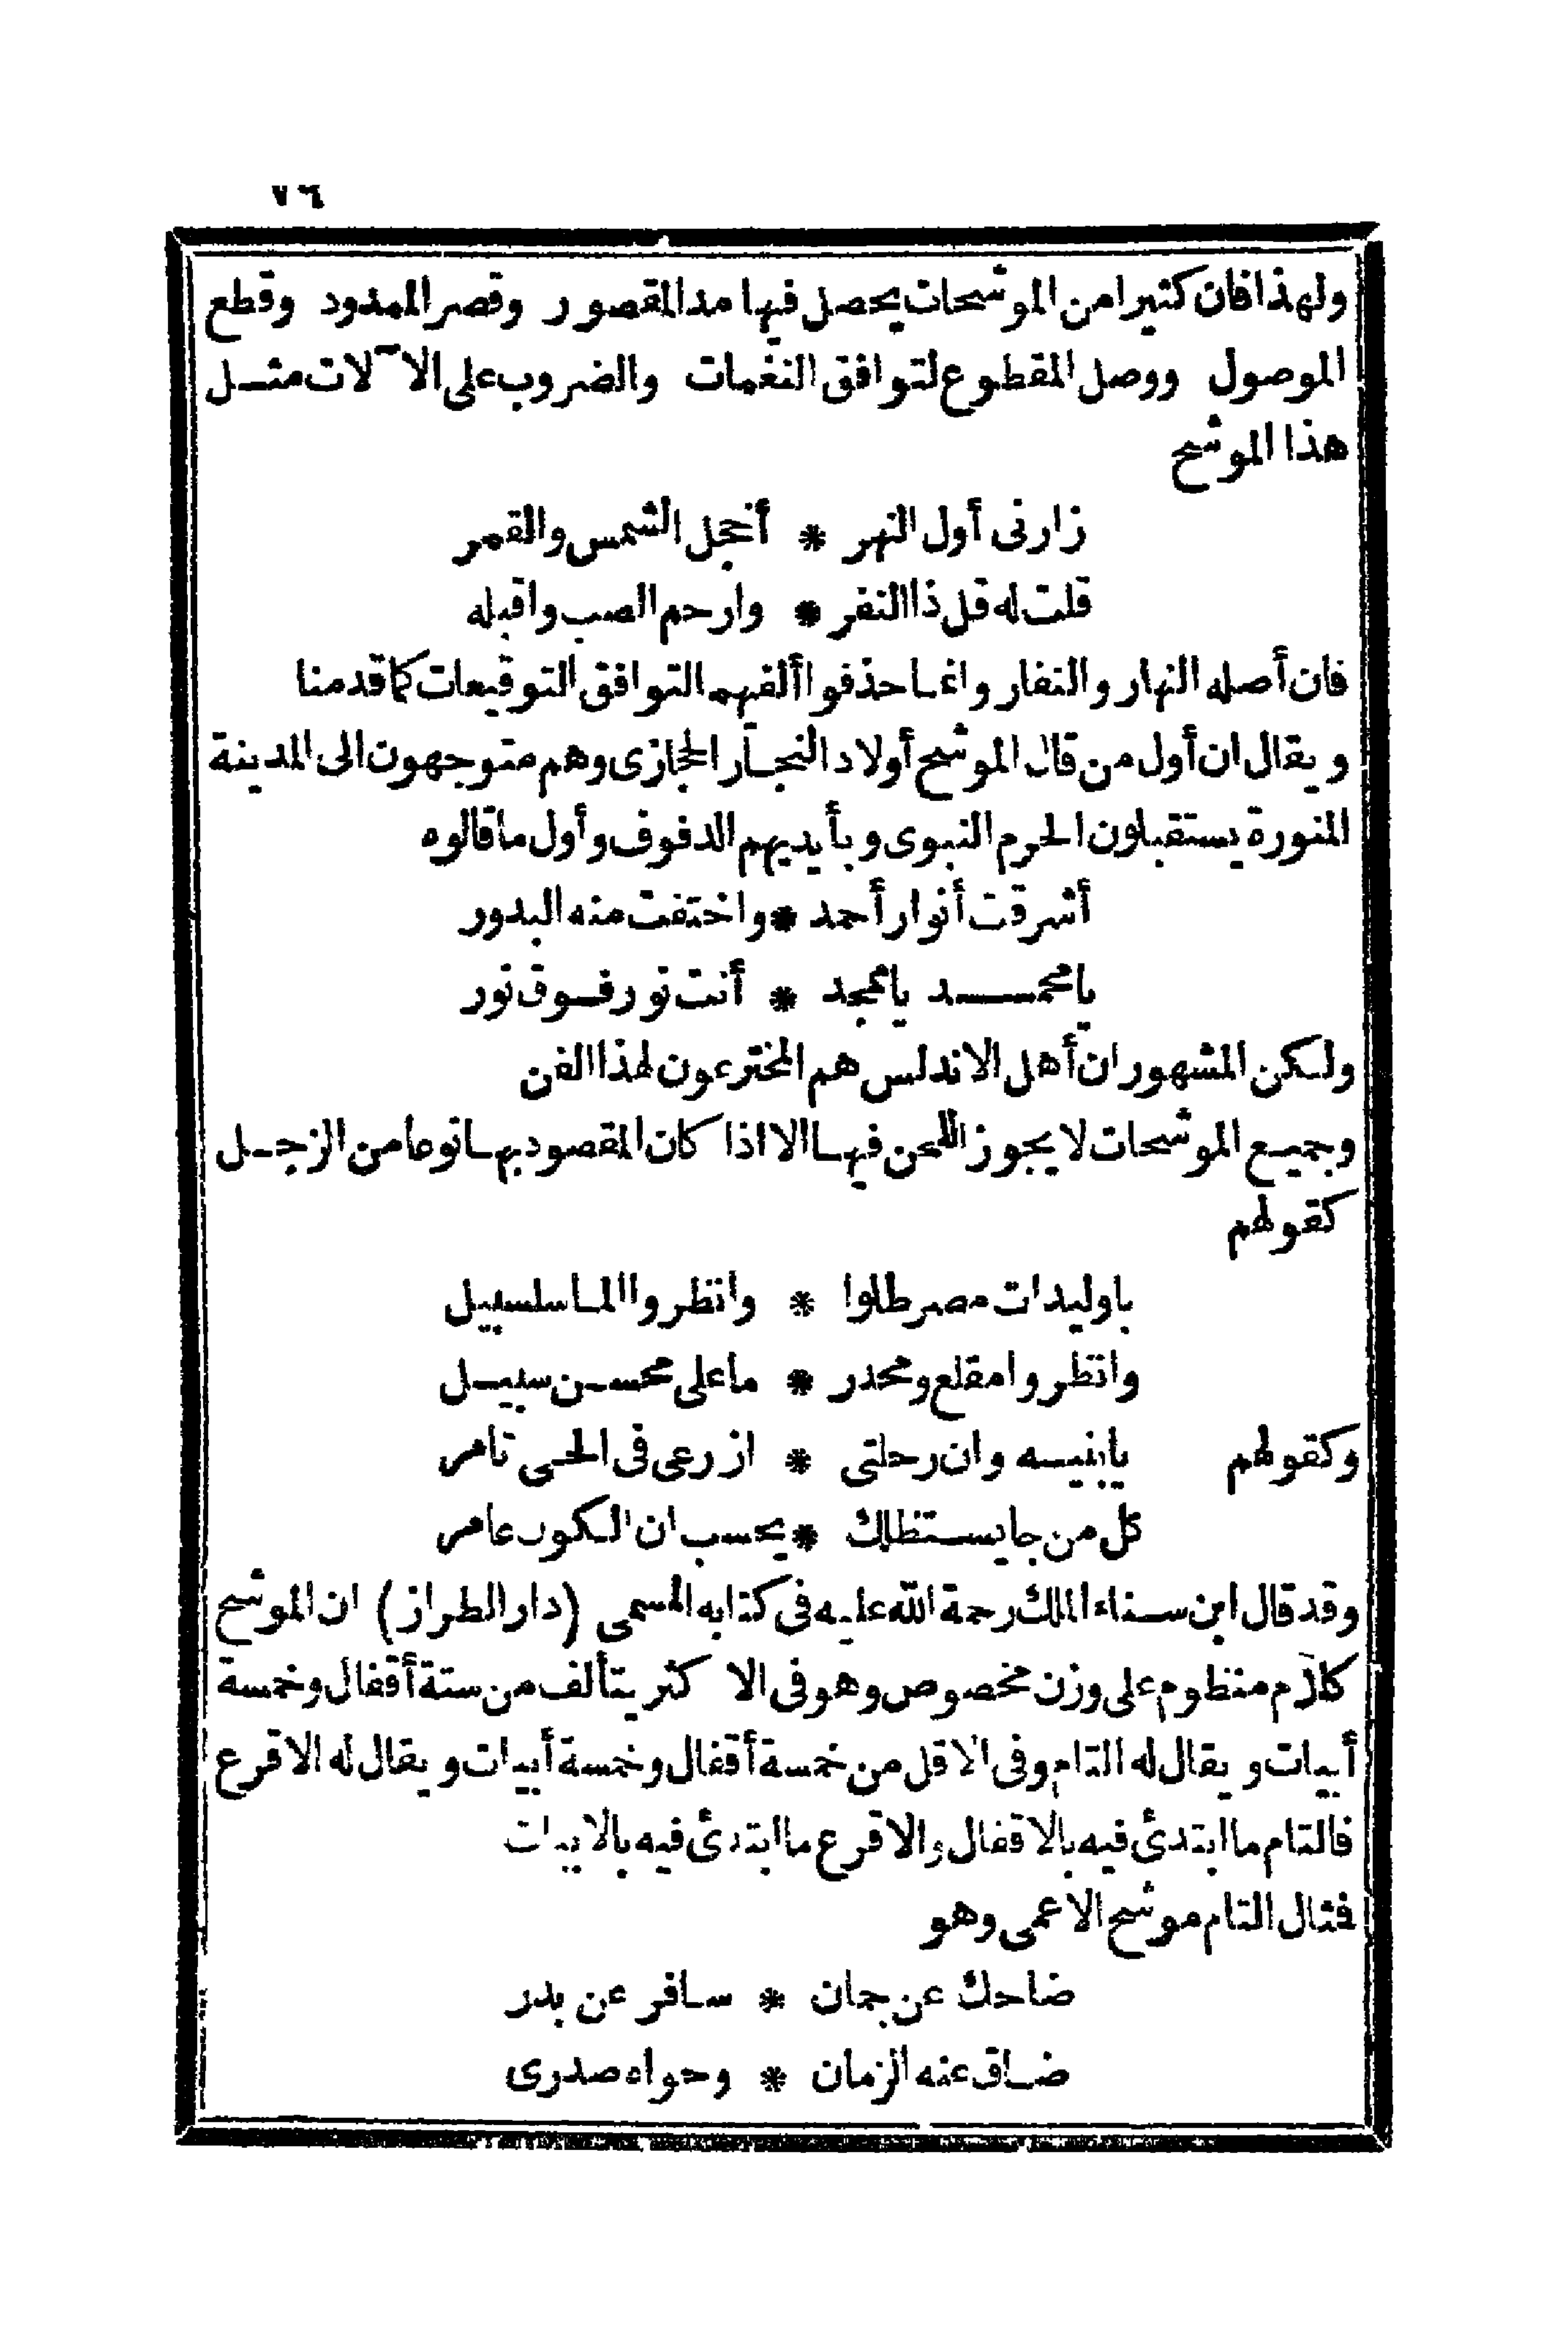 ٧٦
ولهذا فان كثيرا من الموشحات يحصل فيها مد المقصور وقصر الممدود وقطع
الموصول ووصل المقطوع لتوافق النغمات والضروب على الآلات مثل
هذا الموشح
زارنى أول النهر * أخجل الشمس والقمر
قلت له قل ذا النفر * وارحم الصب واقبله
فان أصله النهار والنفار وانما حذفوا ألفهما لتوافق التوقيعات كما قدمنا
ويقال ان أول من قال الموشح أولاد النجار الحجازى وهم متوجهون الى المدينة
المنورة يستقبلون الحرم النبوى وبأيديهم الدفوف وأول ما قالوه
أشرقت أنوار أحمد * واختفت منه البدور
يا محمد يا ممجد * أنت نور فوق نور
ولكن المشهور ان أهل الاندلس هم المخترعون لهذا الفن
وجميع الموشحات لا يجوز اللحن فيها الا اذا كان المقصود بها نوعا من الزجل
كقولهم
يا وليدات مصر طلوا * وانظروا الما سلسبيل
وانظروا مقلع ومحدر * ما على محسن سبيل
وكقولهم يابنيه وان رحلتى * ازرعى فى الحى تامر
كل من جا يستظلك * يحسب ان الكون عامر
وقد قال ابن سناء الملك رحمة الله عليه فى كتابه المسمى (دار الطراز) ان الموشح
كلام منظوم على وزن مخصوص وهو فى الاكثر يتألف من ستة أقفال وخمسة
أبيات ويقال له التام وفى الاقل من خمسة أقفال وخمسة أبيات ويقال له الاقرع
فالتام ما ابتدئ فيه بالاقفال والاقرع ما ابتدئ فيه بالابيات
فمثال التام موشح الاعمى وهو
ضاحك عن جمان * سافر عن بدر
ضاق عنه الزمان * وحواه صدرى